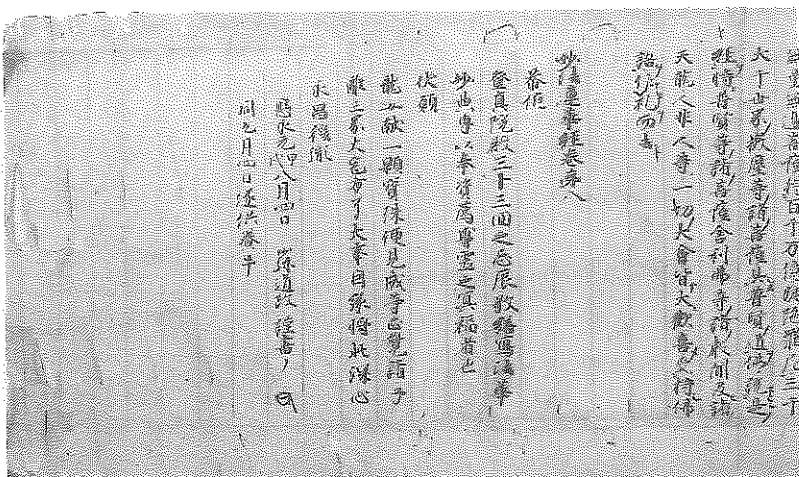 無量無邊菩薩得百千万億旋陀羅尼三千
大千世界微塵等諸菩薩具普賢道佛說是
經時普賢等諸菩薩舍利弗等諸聲聞及諸
天龍人非人等一切大會皆大歡喜受持佛
語作礼而去
妙法蓮華經卷第八
恭惟
登真院殿三十三回之忌辰敬繕寫法華
妙典專以奉資薦尊霊之冥福者也
伏願
龍女献一顆寳珠便見成等正覺諸子
離三界火宅了大事因緣將此深心
永昌後胤
應永元甲戌八月四日 孫道政謹書
同九月四日遂供養畢